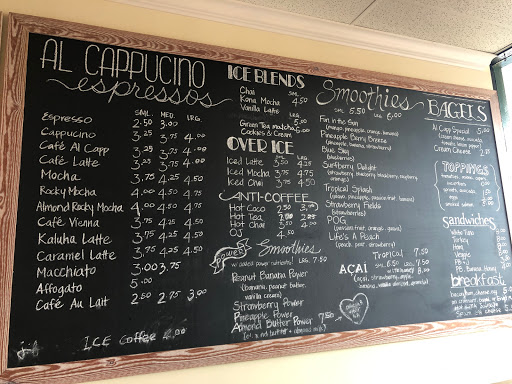 AL CAPPUCINO
espressos
SML. MED. LRG.
Espresso 2.50 3.00
Cappucino 3.25 3.75 4.00
Café Al Capp 3.25 3.75 4.00
Café Latte 3.25 3.75 4.00
Mocha 3.75 4.25 4.50
Rocky Mocha 4.00 4.50 4.75
Almond Rocky Mocha 4.00 4.50 4.75
Café Vienna 3.75 4.25 4.50
Kaluha Latte 3.75 4.25 4.50
Caramel Latte 3.75 4.25 4.50
Macchiato 3.00 3.75
Affogato 5.00
Café Au Lait 2.50 2.75 3.00
ICE Coffee
ICE BLENDS
SML. LRG.
Chai
Kona Mocha 4.50
Vanilla Latte
Green Tea matcha
Cookies & Cream 5.00
OVER ICE
Iced Latte 3.50 4.25
Iced Mocha 3.75 4.75
Iced Chai 3.75 4.50
ANTI-COFFEE
Hot Coco 2.50
Hot Tea
Hot Chai
OJ 4.50
Power Smoothies LRG. 7.50
w/ added power nutrients!
Peanut Banana Power
(banana, peanut butter, vanilla cream)
Strawberry Power
Pineapple Power
Almond Butter Power 7.50
Smoothies
SML. 5.50 LRG. 6.00
Fun in the Sun
(mango, pineapple, orange, banana)
Pineapple Berry Breeze
(pineapple, banana, strawberry)
Blue Sky
(blueberries)
Surfberry Delight
(strawberry, blueberry, blackberry, raspberry, orange)
Tropical Splash
(banana, pineapple, passion fruit, orange)
Strawberry Fields
(strawberries)
POG
(passion fruit, orange, guava)
Life's A Peach
(peach, pear, strawberry)
Tropical 7.50
AÇAÍ
BAGELS
Al Capp Special 5.00
Cream Cheese
TOPPINGS
SANDWICHES
White Tuna
Turkey
Ham
Veggie
PB & J
PB, Banana, Honey
breakfast